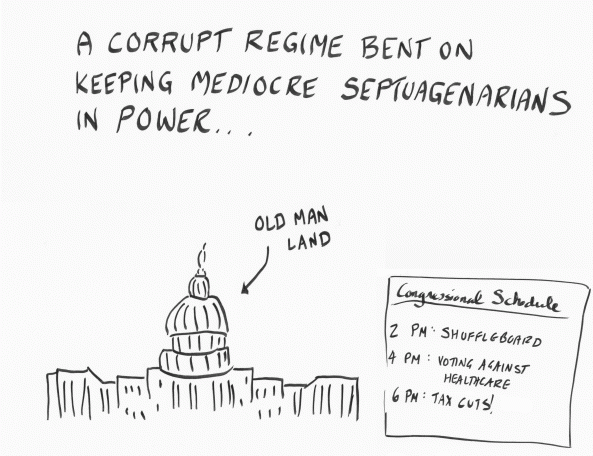 A CORRUPT REGIME BENT ON
KEEPING MEDIOCRE SEPTUAGENARIANS
IN POWER...
OLD MAN
LAND
Congressional Schedule
2 PM: SHUFFLEBOARD
4 PM: VOTING AGAINST
HEALTHCARE
6 PM: TAX CUTS!